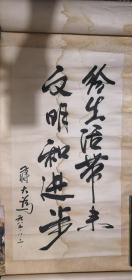 给生活带来
文明和进步
蒋大为